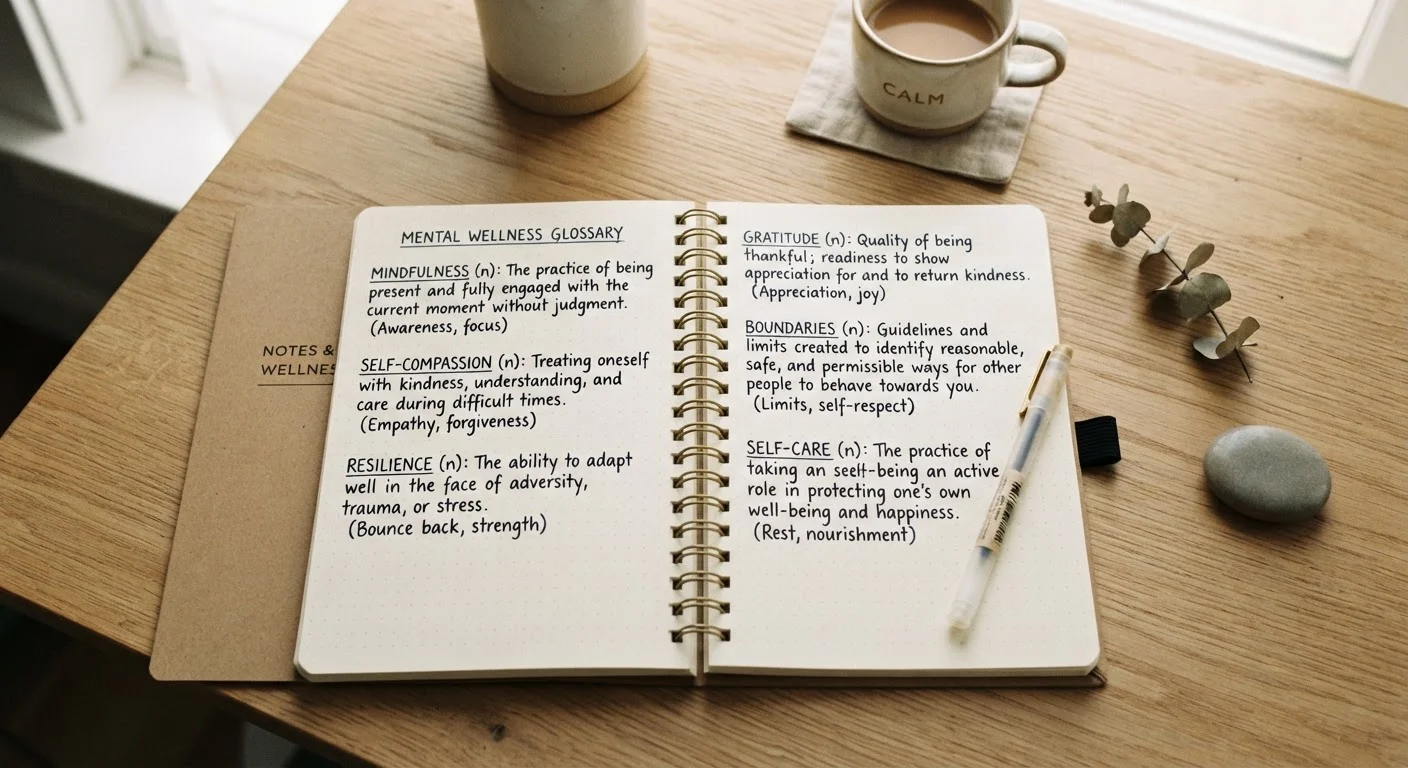 CALM
NOTES &
WELLNES
MENTAL WELLNESS GLOSSARY
MINDFULNESS (n): The practice of being
present and fully engaged with the
current moment without judgment.
(Awareness, focus)
SELF-COMPASSION (n): Treating oneself
with kindness, understanding, and
care during difficult times.
(Empathy, forgiveness)
RESILIENCE (n): The ability to adapt
well in the face of adversity,
trauma, or stress.
(Bounce back, strength)
GRATITUDE (n): Quality of being
thankful; readiness to show
appreciation for and to return kindness.
(Appreciation, joy)
BOUNDARIES (n): Guidelines and
limits created to identify reasonable,
safe, and permissible ways for other
people to behave towards you.
(Limits, self-respect)
SELF-CARE (n): The practice of
taking an seelt-being an active
role in protecting one's own
well-being and happiness.
(Rest, nourishment)